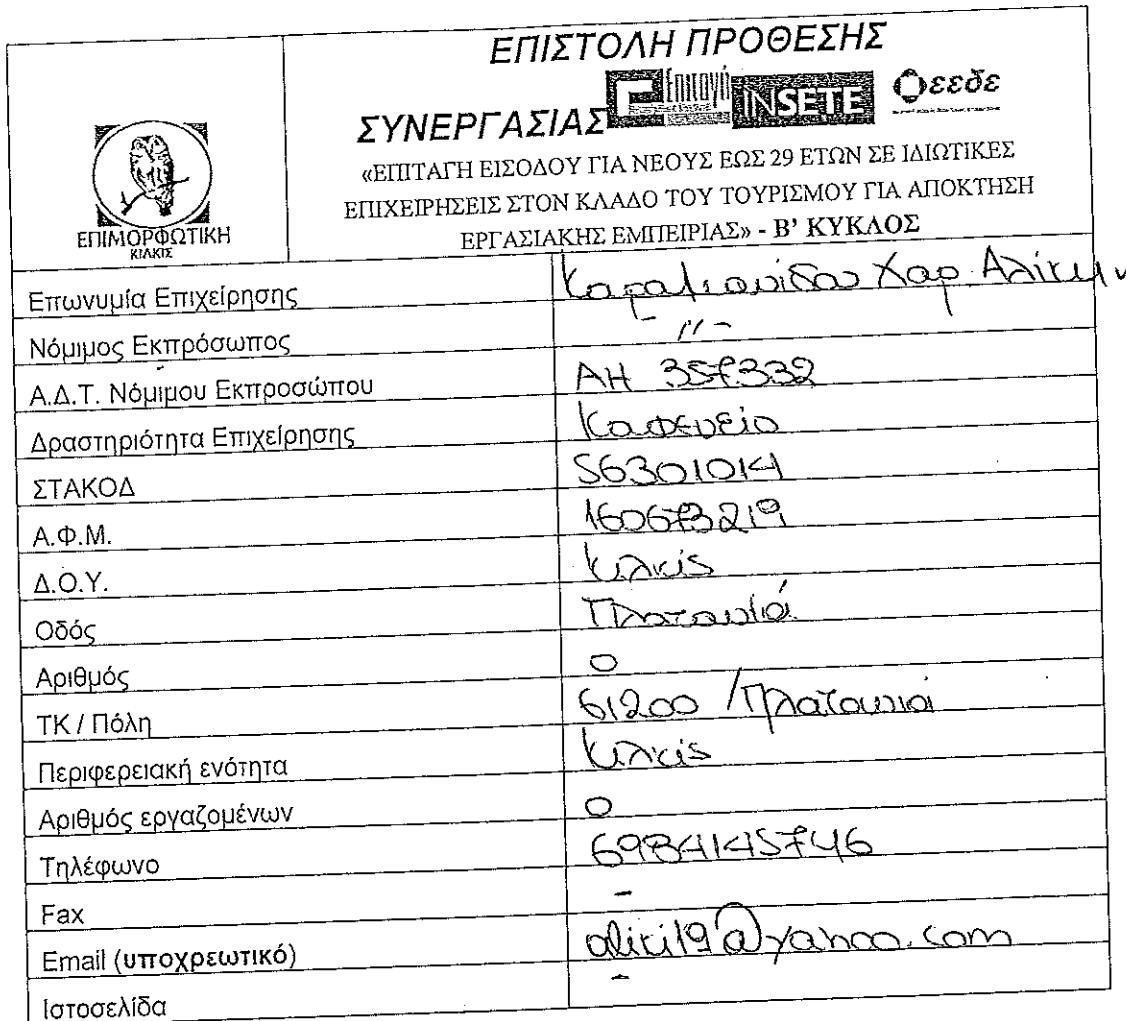 ΕΠΙΣΤΟΛΗ ΠΡΟΘΕΣΗΣ
ΣΥΝΕΡΓΑΣΙΑΣ
Επιταγή INSETE εεδε
«ΕΠΙΤΑΓΗ ΕΙΣΟΔΟΥ ΓΙΑ ΝΕΟΥΣ ΕΩΣ 29 ΕΤΩΝ ΣΕ ΙΔΙΩΤΙΚΕΣ
ΕΠΙΧΕΙΡΗΣΕΙΣ ΣΤΟΝ ΚΛΑΔΟ ΤΟΥ ΤΟΥΡΙΣΜΟΥ ΓΙΑ ΑΠΟΚΤΗΣΗ
ΕΡΓΑΣΙΑΚΗΣ ΕΜΠΕΙΡΙΑΣ» - Β' ΚΥΚΛΟΣ
ΕΠΙΜΟΡΦΩΤΙΚΗ
ΚΙΛΚΙΣ
Επωνυμία Επιχείρησης Χαρ. Αλίκη
Νόμιμος Εκπρόσωπος - // -
Α.Δ.Τ. Νόμιμου Εκπροσώπου ΑΗ 357332
Δραστηριότητα Επιχείρησης Καφενείο
ΣΤΑΚΟΔ 56301014
Α.Φ.Μ. 160673219
Δ.Ο.Υ. Κιλκίς
Οδός Πλατανιά
Αριθμός 0
ΤΚ / Πόλη 61200 / Πλατανιά
Περιφερειακή ενότητα Κιλκίς
Αριθμός εργαζομένων 0
Τηλέφωνο 6984145746
Fax -
Email (υποχρεωτικό) aliki19@yahoo.com
Ιστοσελίδα -